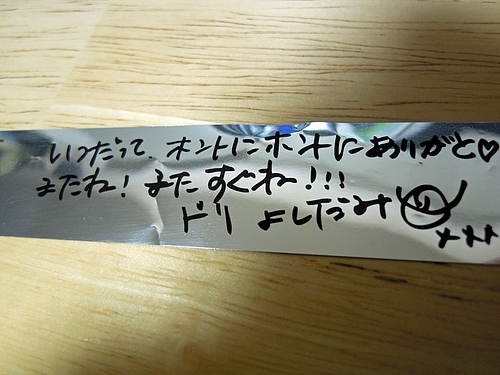 いつだって、ホントにホントにありがと♡
またね！またすぐね〜！！！
ドリ よしだみ